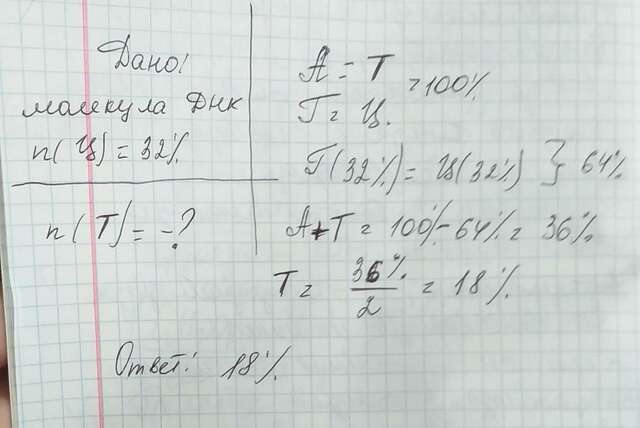 Дано:
молекула ДНК
n(Ц) = 32%
n(Т) = -?
А = Т
Г = Ц.
= 100%
Г(32%) = Ц(32%) } 64%
А+Т = 100% - 64% = 36%
Т = 36%/2 = 18%
Ответ: 18%